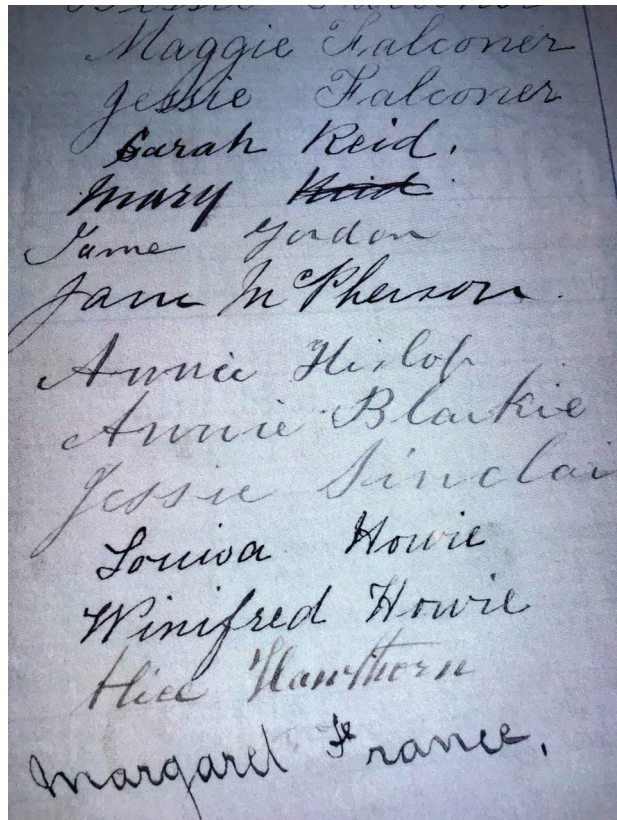 Falconer
Maggie Falconer
Jessie Falconer
Sarah Reid.
Mary Reid
Jame Gordon
Jane McPherson.
Annie Hislop
Annie Blackie
Jessie Sinclai
Louisa Howie
Winifred Howie
Alice Hawthorn
Margaret France,